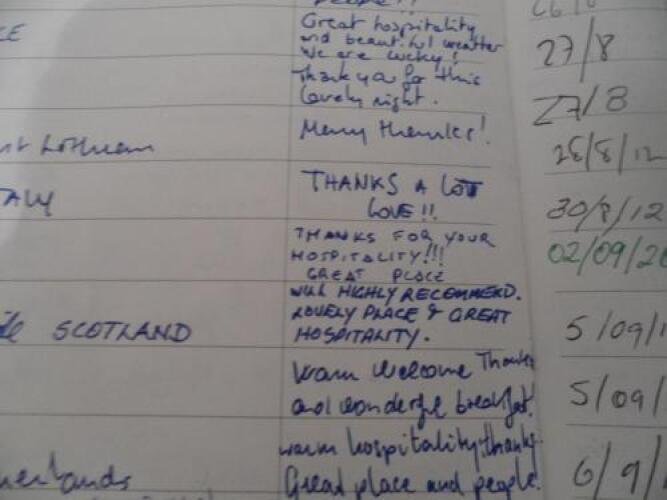 people!!
Great hospitality
and beautiful weather
We are lucky!
27/8
Thank you for this
lovely night.
27/8
Many thanks!
28/8/12
THANKS A LOT
LOVE!!
30/8/12
THANKS FOR YOUR
HOSPITALITY!!!
GREAT PLACE
02/09/20
WILL HIGHLY RECOMMEND.
LOVELY PLACE & GREAT
SCOTLAND
HOSPITALITY.
5/09/1
Warm Welcome Thanks
and wonderful breakfast.
5/09/
warm hospitality, thanks.
Great place and people.
6/9/